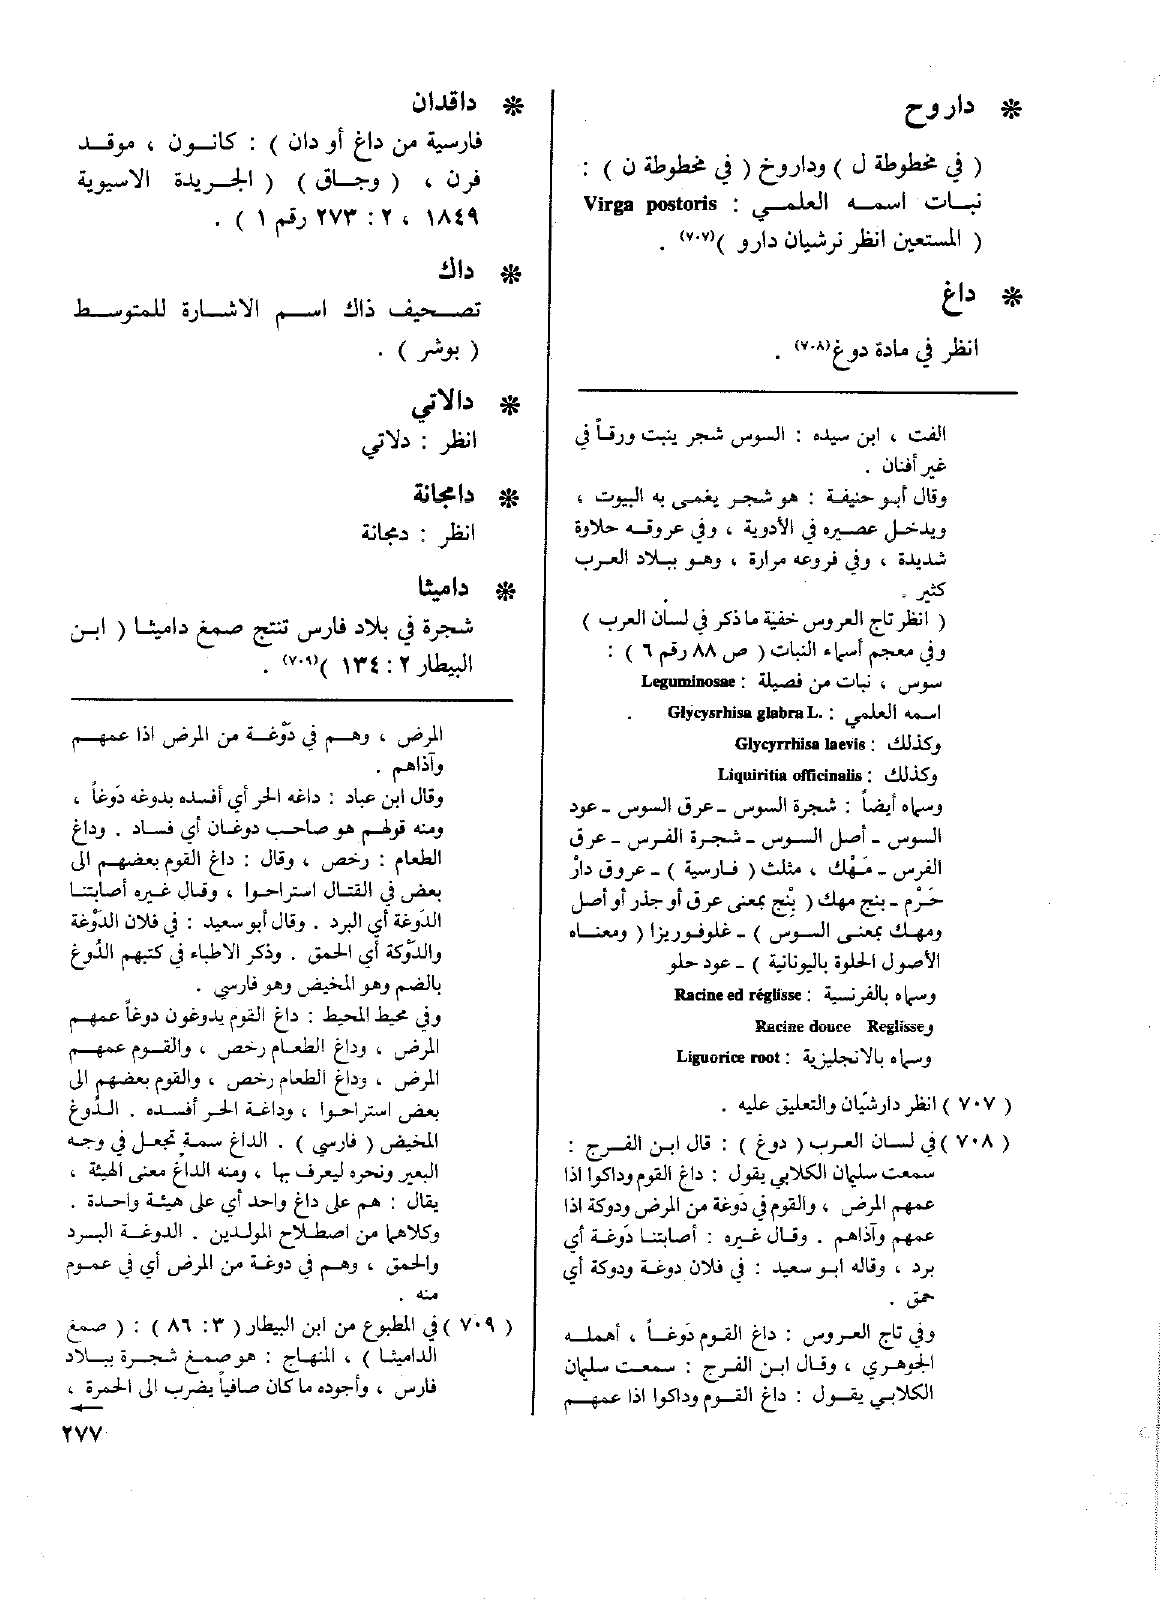 * داروح
( في مخطوطة ل ) وداروخ ( في مخطوطة ن ) :
نبات اسمه العلمي : Virga postoris
( المستعين انظر نرشيان دارو )(٧٠٧) .
* داغ
انظر في مادة دوغ(٧٠٨) .
الفت ، ابن سيده : السوس شجر ينبت ورقاً في
غير أفنان .
وقال أبو حنيفة : هو شجر يغمى به البيوت ،
ويدخل عصيره في الأدوية ، وفي عروقه حلاوة
شديدة ، وفي فروعه مرارة ، وهو ببلاد العرب
كثير .
( انظر تاج العروس خفية ما ذكر في لسان العرب )
وفي معجم أسماء النبات ( ص ٨٨ رقم ٦ ) :
سوس ، نبات من فصيلة : Leguminosae
اسمه العلمي : Glycysrhisa glabra L. .
وكذلك : Glycyrrhisa laevis
وكذلك : Liquiritia officinalis
وسماه أيضاً : شجرة السوس ـ عرق السوس ـ عود
السوس ـ أصل السوس ـ شجرة الفرس ـ عرق
الفرس ـ مَهْك ، مثلث ( فارسية ) ـ عروق دارْ
حَرْم ـ بنج مهك ( بِنْج بمعنى عرق أو جذر أو أصل
ومهك بمعنى السوس ) ـ غلوفوريزا ( ومعناه
الأصول الحلوة باليونانية ) ـ عود حلو
وسماه بالفرنسية : Racine ed réglisse
Racine douce Reglisseو
وسماه بالانجليزية : Liguorice root
( ٧٠٧ ) انظر دارشيّان والتعليق عليه .
( ٧٠٨ ) في لسان العرب ( دوغ ) : قال ابن الفرج :
سمعت سليمان الكلابي يقول : داغ القوم وداكوا اذا
عمهم المرض ، والقوم في دَوغة من المرض ودوكة اذا
عمهم وآذاهم . وقال غيره : أصابتنا دَوغة أي
برد ، وقاله ابو سعيد : في فلان دوغة ودوكة أي
حمق .
وفي تاج العروس : داغ القوم دَوغاً ، أهمله
الجوهري ، وقال ابن الفرج : سمعت سليمان
الكلابي يقول : داغ القوم وداكوا اذا عمهم
* داقدان
فارسية من داغ أو دان ) : كانون ، موقد
فرن ، ( وجاق ) ( الجريدة الاسيوية
١٨٤٩ ، ٢ : ٢٧٣ رقم ١ ) .
* داك
تصحيف ذاك اسم الاشارة للمتوسط
( بوشر ) .
* دالاتي
انظر : دلاتي
* دامجانة
انظر : دمجانة
* داميثا
شجرة في بلاد فارس تنتج صمغ داميثا ( ابن
البيطار ٢ : ١٣٤ )(٧٠٩) .
المرض ، وهم في دَوْغة من المرض اذا عمهم
وآذاهم .
وقال ابن عباد : داغه الحر أي أفسده يدوغه دَوغاً ،
ومنه قولهم هو صاحب دوغان أي فساد . وداغ
الطعام : رخص ، وقال : داغ القوم بعضهم الى
بعض في القتال استراحوا ، وقال غيره أصابتنا
الدَوغة أي البرد . وقال أبو سعيد : في فلان الدَوْغة
والدَوْكة أي الحمق . وذكر الاطباء في كتبهم الدُوغ
بالضم وهو المخيض وهو فارسي .
وفي محيط المحيط : داغ القوم يدوغون دوغاً عمهم
المرض ، وداغ الطعام رخص ، والقوم عمهم
المرض ، وداغ الطعام رخص ، والقوم بعضهم الى
بعض استراحوا ، وداغة الحر أفسده . الدُوغ
المخيض ( فارسي ) . الداغ سمة تجعل في وجه
البعير ونحره ليعرف بها ، ومنه الداغ معنى الهيئة ،
يقال : هم على داغ واحد أي على هيئة واحدة .
وكلاهما من اصطلاح المولدين . الدوغة البرد
والحمق ، وهم في دوغة من المرض أي في عموم
منه .
( ٧٠٩ ) في المطبوع من ابن البيطار ( ٣ : ٨٦ ) : ( صمغ
الداميثا ) ، المنهاج : هو صمغ شجرة ببلاد
فارس ، وأجوده ما كان صافياً يضرب الى الحمرة ،
٢٧٧